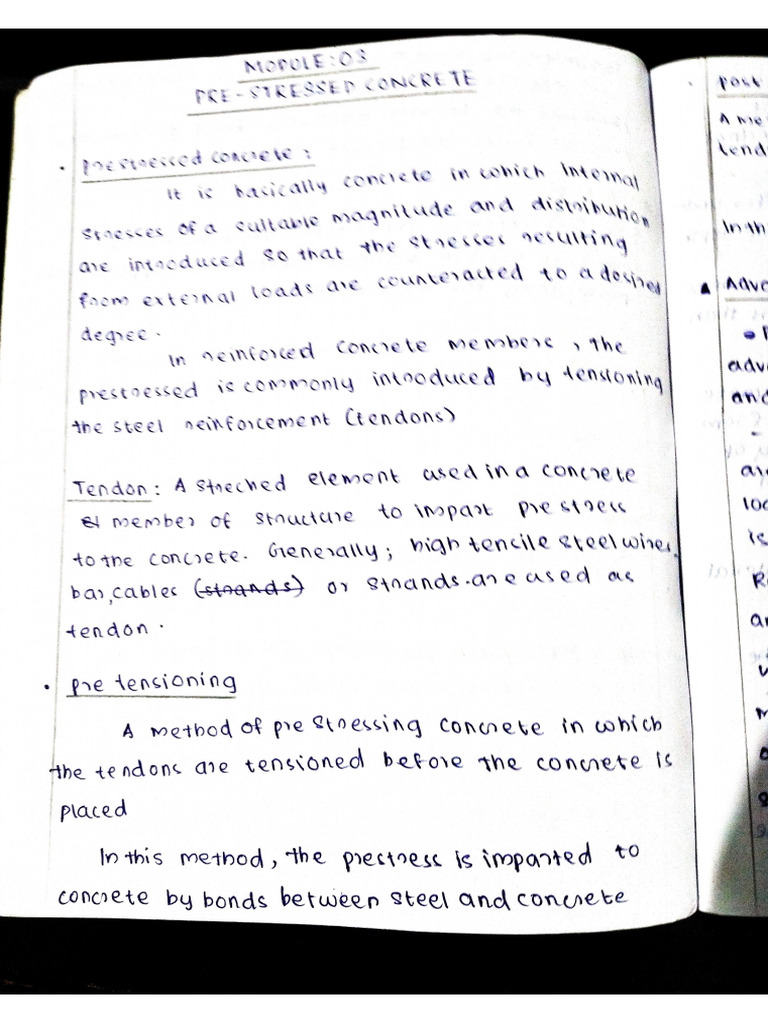 MODULE:03
PRE-STRESSED CONCRETE
• prestressed concrete :
It is basically concrete in which internal
stresses of a suitable magnitude and distribution
are introduced so that the stresses resulting
from external loads are counteracted to a desired
degree.
In reinforced concrete members, the
prestressed is commonly introduced by tensioning
the steel reinforcement (tendons)
Tendon: A streched element used in a concrete
member of structure to impart prestress
to the concrete. Generally; high tencile steel wires,
bar, cables (strands) or strands are used as
tendon.
• pre tensioning
A method of pre stressing concrete in which
the tendons are tensioned before the concrete is
placed
In this method, the prestress is imparted to
concrete by bonds between steel and concrete
post
A me
tend
In th
Adve
adv
and
loa
is